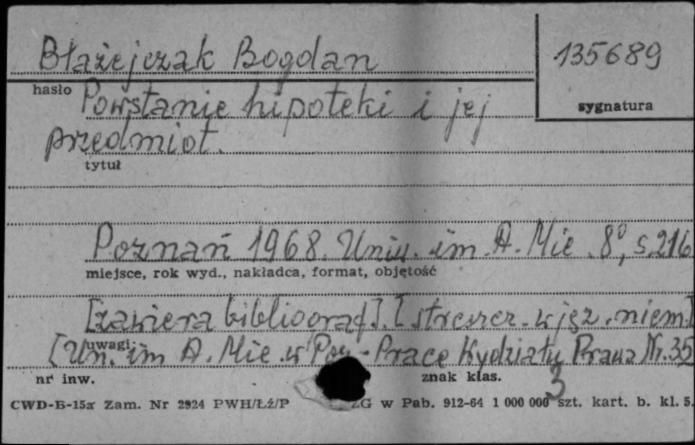 Błażejczak Bogdan
135689
hasło
sygnatura
Powstanie hipoteki i jej
przedmiot.
tytuł
Poznań 1968. Uniw. im. A. Mic. 8°, s. 216
miejsce, rok wyd., nakładca, format, objętość
[zawiera bibliograf]. [streszcz. w jęz. niem.]
uwagi:
[Un. im A. Mic. w Poz. - Prace Wydziału Prawa Nr. 35
nr inw.
znak klas.
3
CWD-B-15a Zam. Nr 2924 PWH/Łź/P ZG w Pab. 912-64 1 000 000 szt. kart. b. kl. 5.